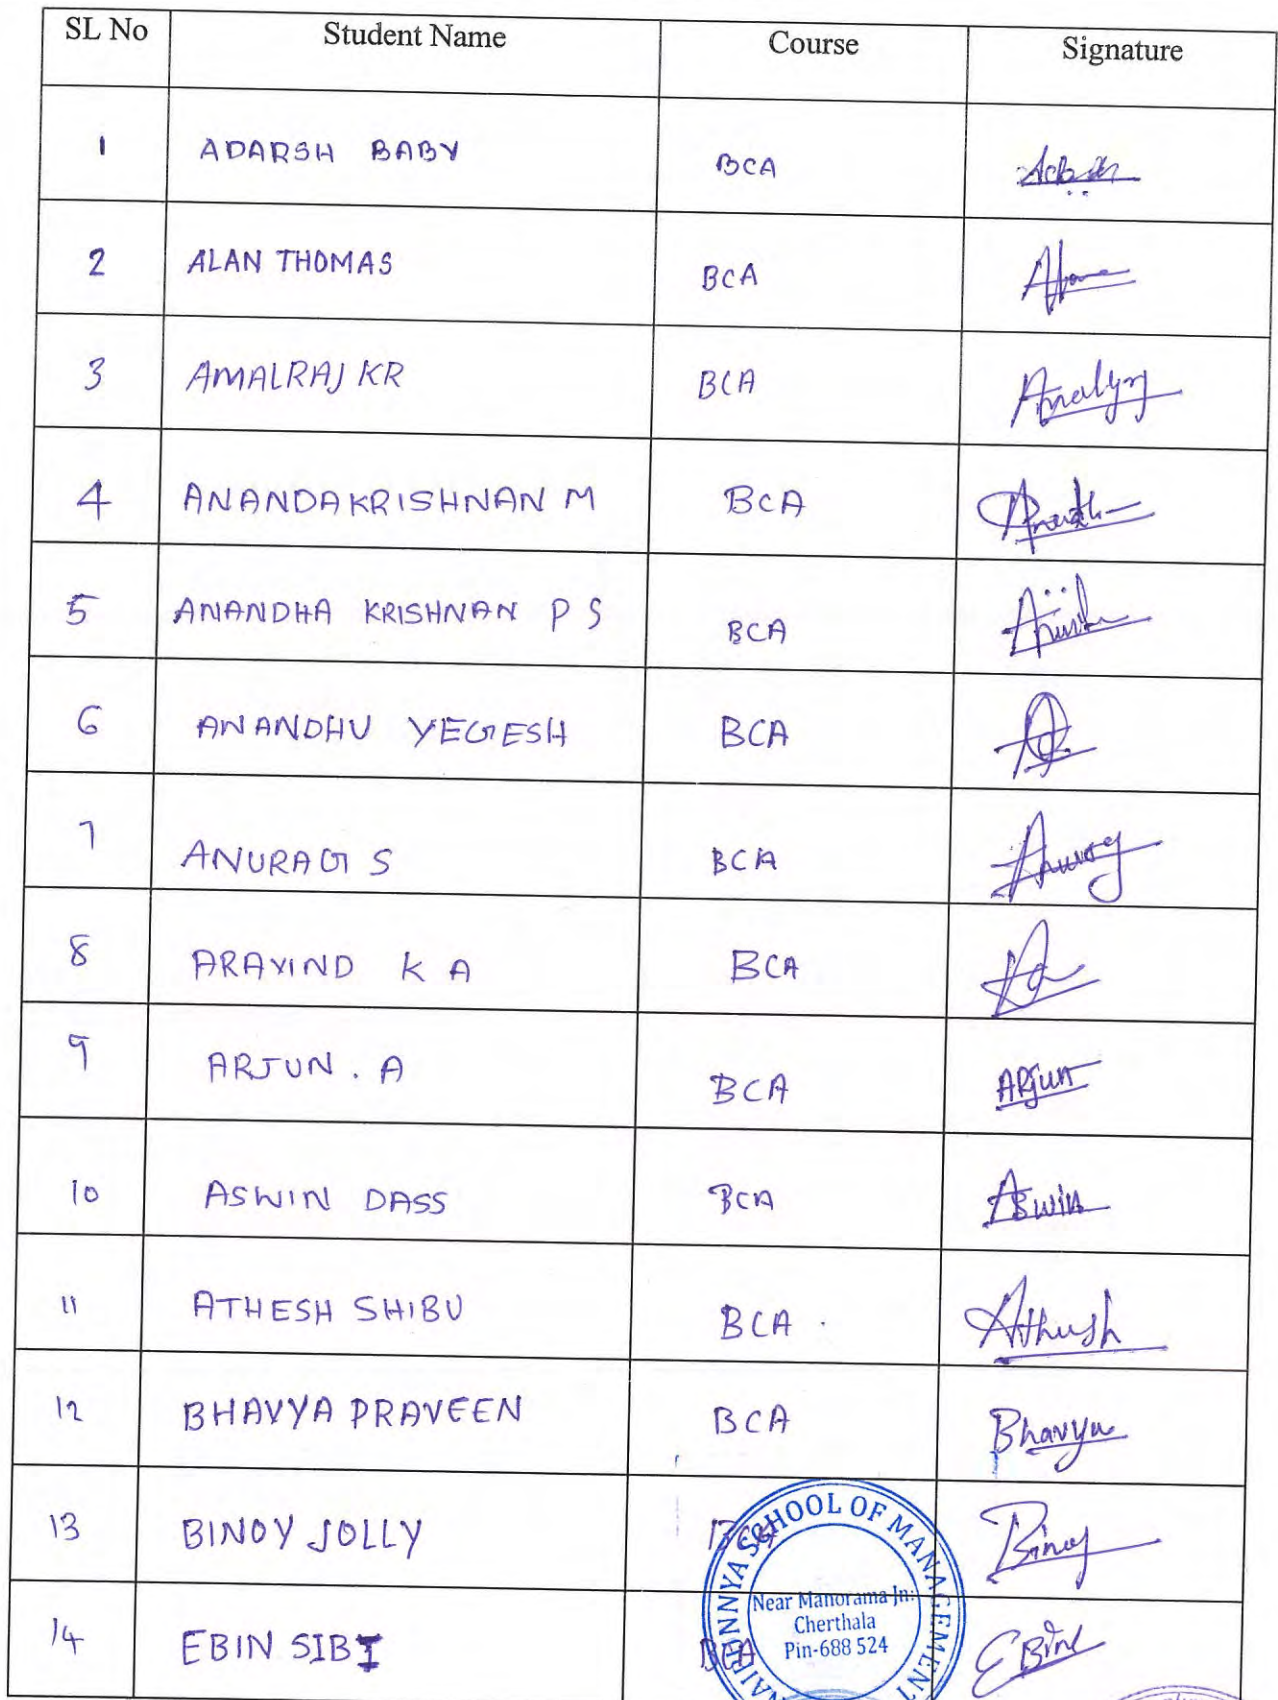 SL No Student Name Course Signature
1 ADARSH BABY BCA
2 ALAN THOMAS BCA
3 AMALRAJ KR BCA
4 ANANDAKRISHNAN M BCA
5 ANANDHA KRISHNAN P S BCA
6 ANANDHU YEGESH BCA
7 ANURAG S BCA Anurag
8 ARAVIND K A BCA
9 ARJUN . A BCA ARjun
10 ASWIN DASS BCA Aswin
11 ATHESH SHIBU BCA . Athesh
12 BHAVYA PRAVEEN BCA Bhavya
13 BINOY JOLLY BCA Binoy
14 EBIN SIBI BCA EBin
NAIPUNNYA SCHOOL OF MANAGEMENT
Near Manorama Jn:
Cherthala
Pin-688 524